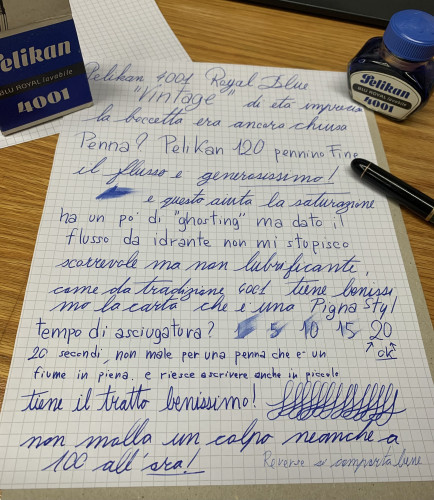 Pelikan
BLU ROYAL lavabile
4001
Pelikan
BLU ROYAL lavabile
4001
Pelikan 4001 Royal Blue
"Vintage" di età imprecisa
la boccetta era ancora chiusa
Penna? Pelikan 120 pennino Fine
il flusso e generosissimo!
e questo aiuta la saturazione
ha un po' di "ghosting" ma dato il
flusso da idrante non mi stupisco
scorrevole ma non lubrificante,
come da tradizione 4001 tiene benissi
mo la carta che e una Pigna Styl
tempo di asciugatura? 1 5 10 15 20
ok
20 secondi, non male per una penna che e' un
fiume in piena, e riesce a scrivere anche in piccolo
tiene il tratto benissimo!
non molla un colpo neanche a
100 all'ora!
Reverse si comporta bene